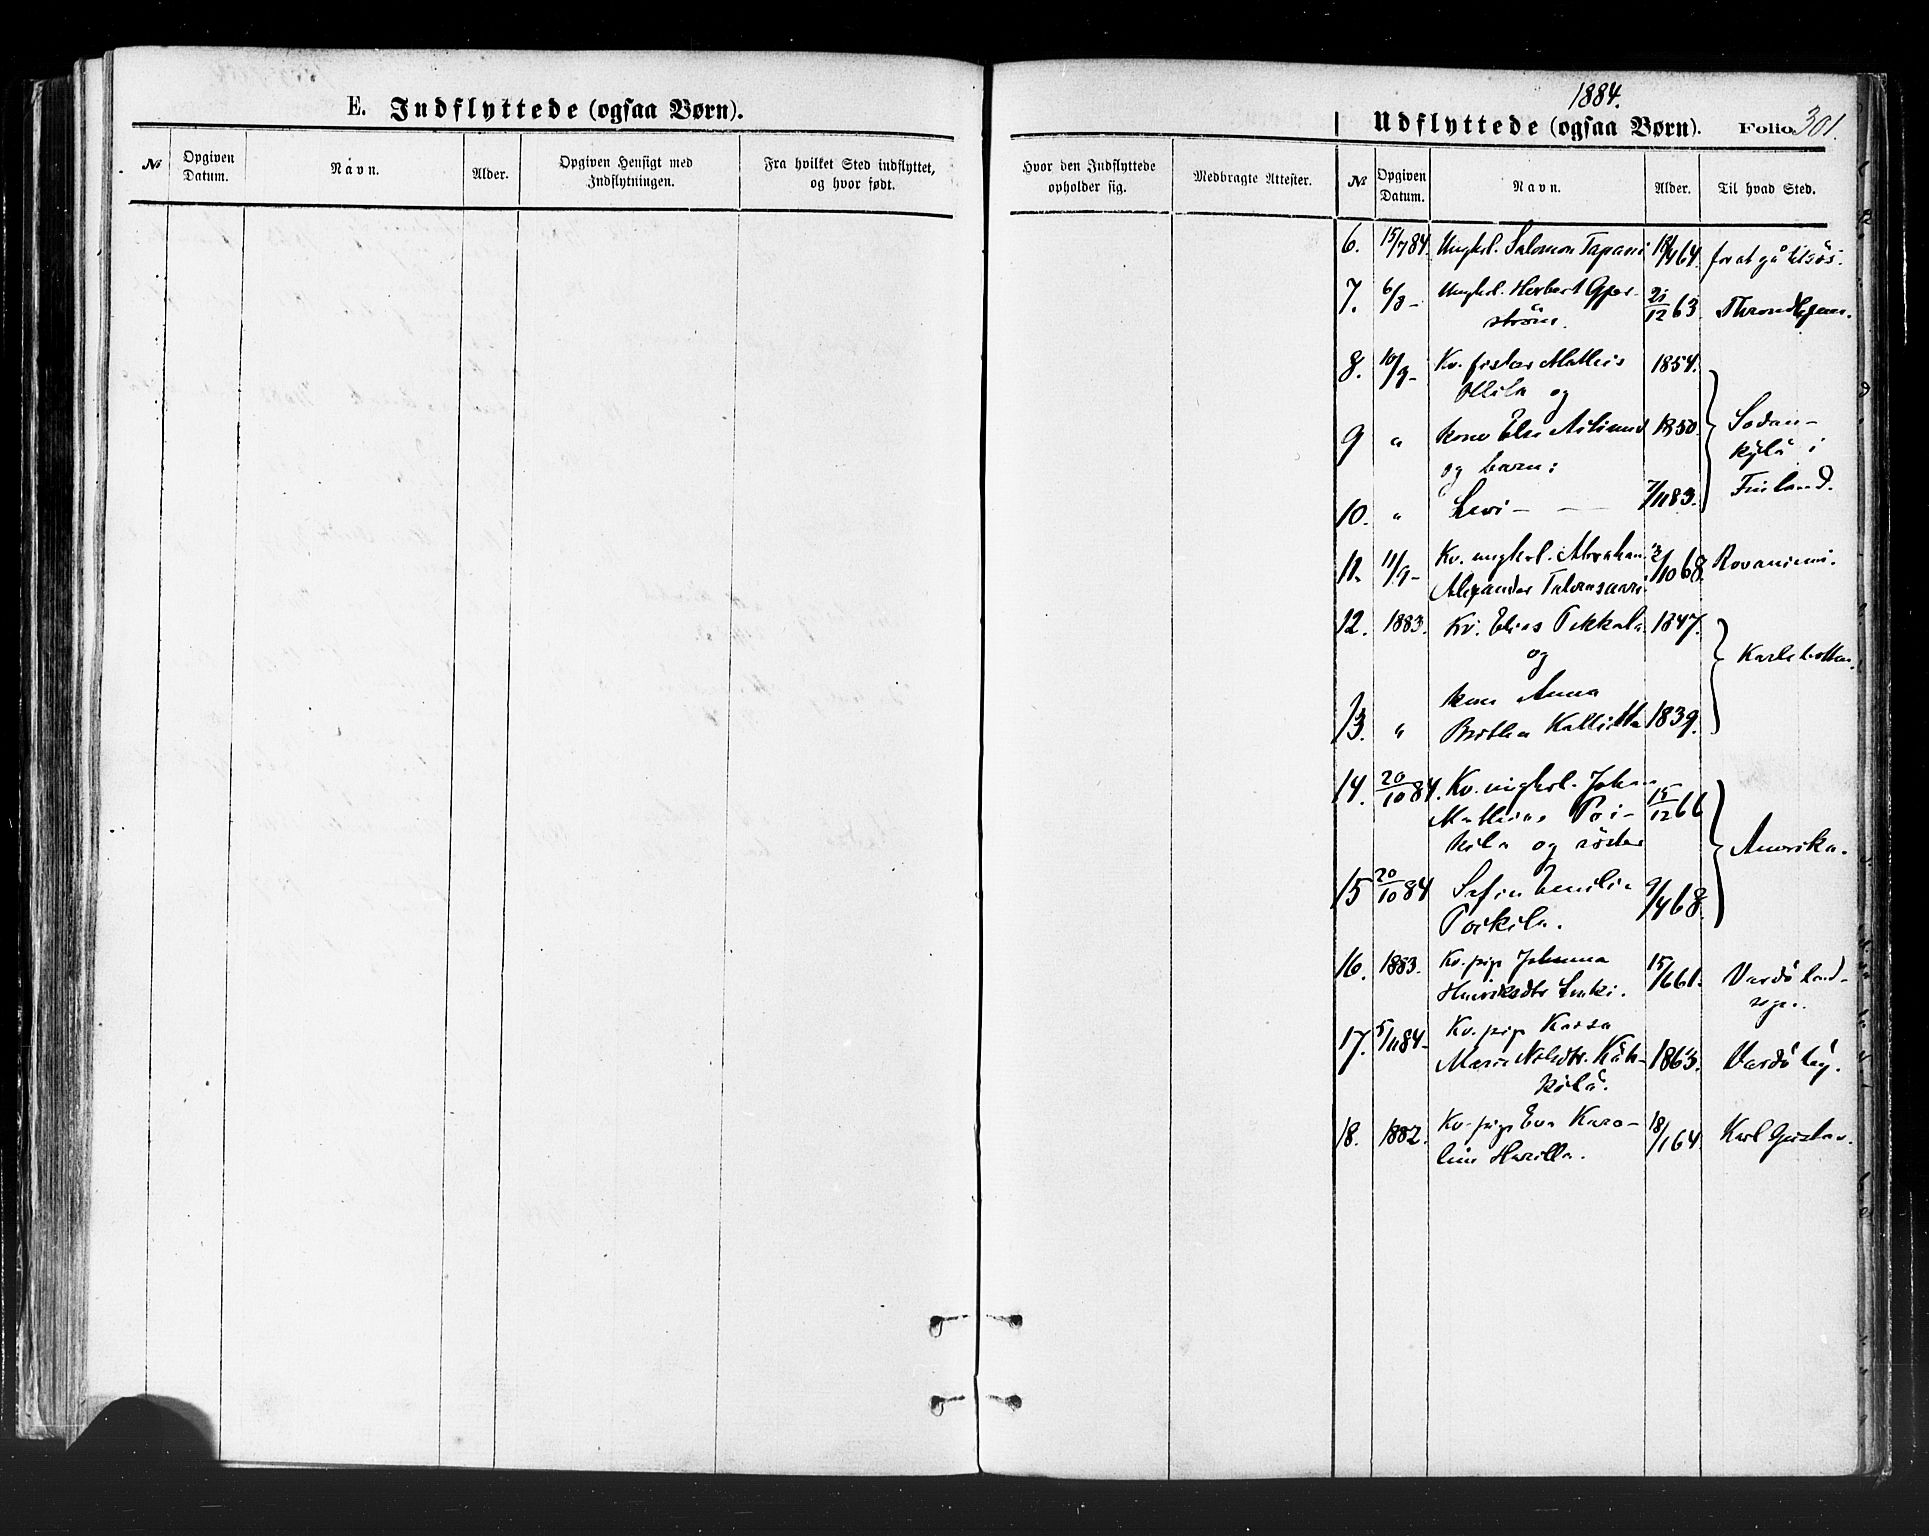 E. Indflyttede (ogsaa Børn).
№ Opgiven Datum. Navn. Alder. Opgiven Hensigt med Indflytningen. Fra hvilket Sted indflyttet, og hvor født.
1884.
Udflyttede (ogsaa Børn). Folio 301.
Hvor den Indflyttede opholder sig. Medbragte Attester. № Opgiven Datum. Navn. Alder. Til hvad Sted.
6. 15/7 84. Ungkrl. Salomon Tapani 18/4 64. for at gå tilsös.
7. 6/8 - Ungkrl. Herbert Gjer-
ström. 21/12 63. Throndhjem.
8. 10/9 - Kv. fisker Mathis 1854.
Ollila og
9 " kone Elsa 1850. Sodan-
og barn: kylä i
10. " Levi - 7/11 83. Finland.
11. 11/9 - Kv. ungkrl. Abraham
Alexander /10 68. Rovaniemi.
12. 1883. Kv. Elias Pekkala 1847.
og Karlebotten.
kone Anna
13. " Britha 1839.
14. 20/10 84. Kv. ungkrl. Johan
Mathias Poi- 15/12 66
kila og söster Amerika.
15 20/10 84 Sofia Emilia
Poikila. 9/4 68.
16. 1883. Kv. pige Johanna 15/6 61. Vardö land-
Henriksdtr sogn.
17. 5/11 84- Kv. pige Kaisa
Maria Nilsdtr. 1863. Vardö by.
18. 1882. Kv. pige Eva Karo- 18/1 64. Karl Gustav.
line